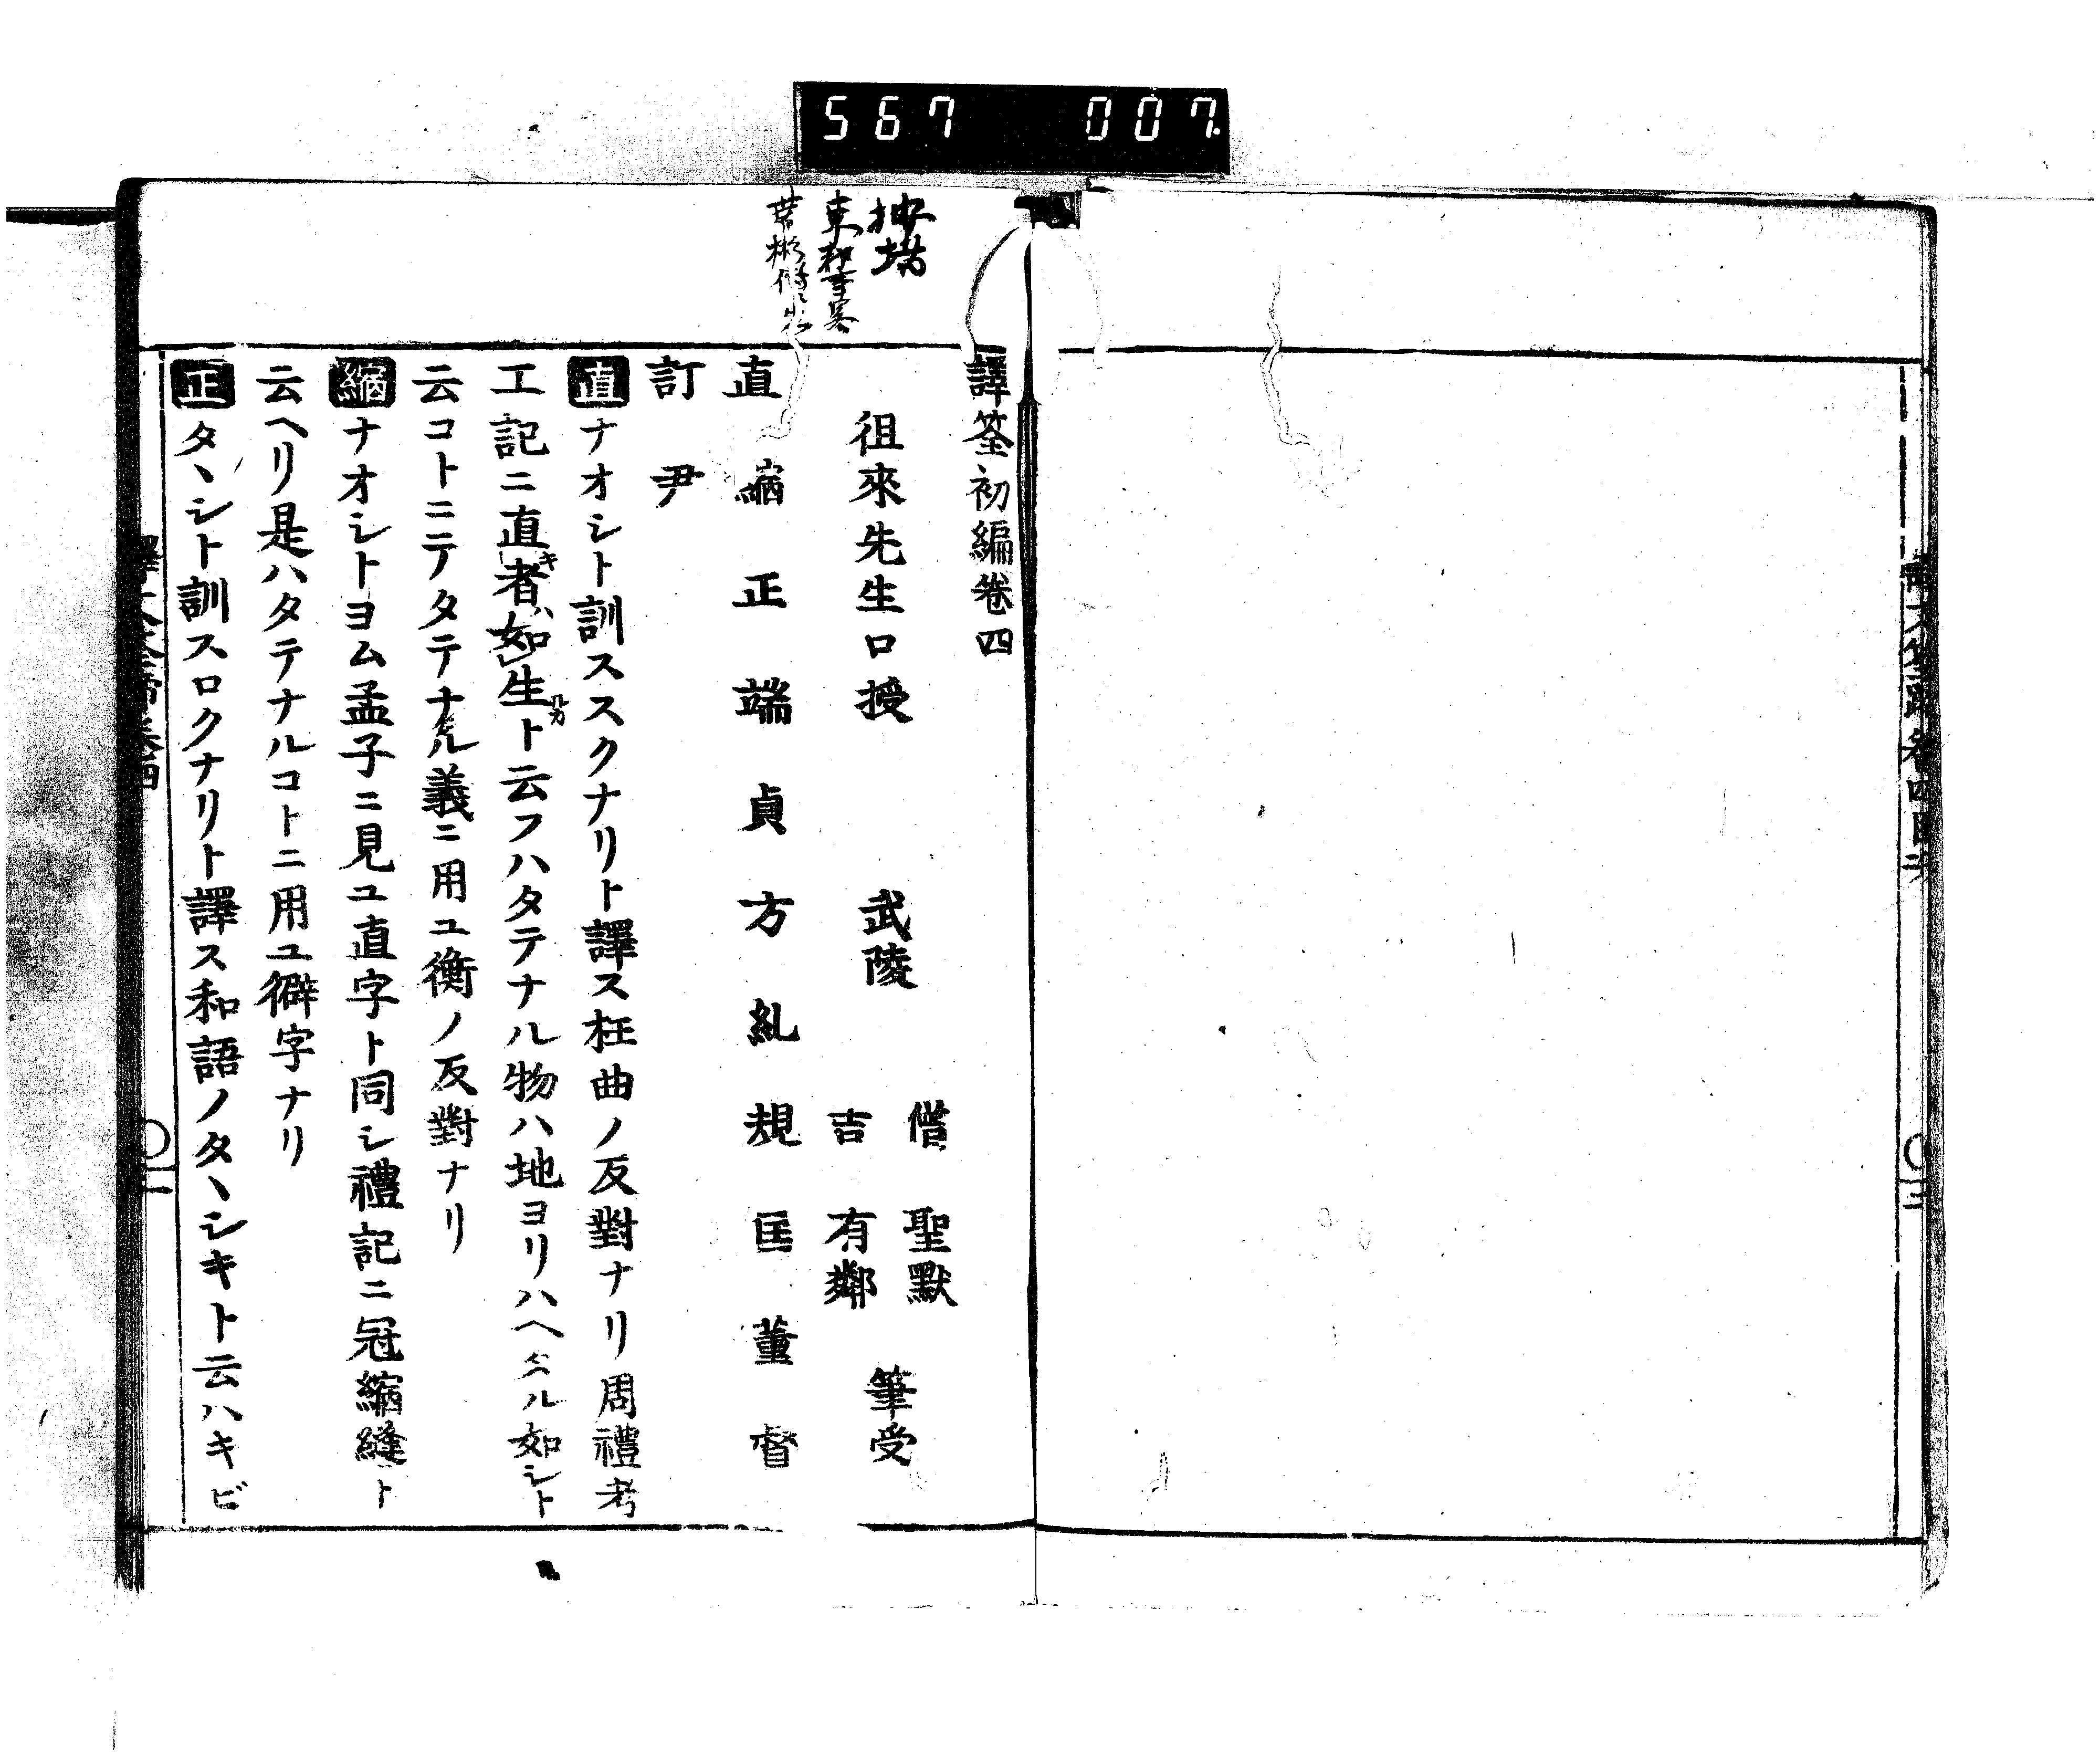 567 007
譯筌初編卷四
徂來先生口授 武陵
僧 聖默
吉 有鄰
筆受
直 縮 正 端 貞 方 糺 規 匡 董 督
訂 尹
直ナオシト訓ススクナリト譯ス枉曲ノ反對ナリ周禮考
工記ニ直者如生ト云フハタテナル物ハ地ヨリハヘタル如シト
云コトニテタテナル義ニ用ユ衡ノ反對ナリ
縮ナオシトヨム孟子ニ見ユ直字ト同シ禮記ニ冠縮縫ト
云ヘリ是ハタテナルコトニ用ユ僻字ナリ
正タヽシト訓スロクナリト譯ス和語ノタヽシキト云ハキビ